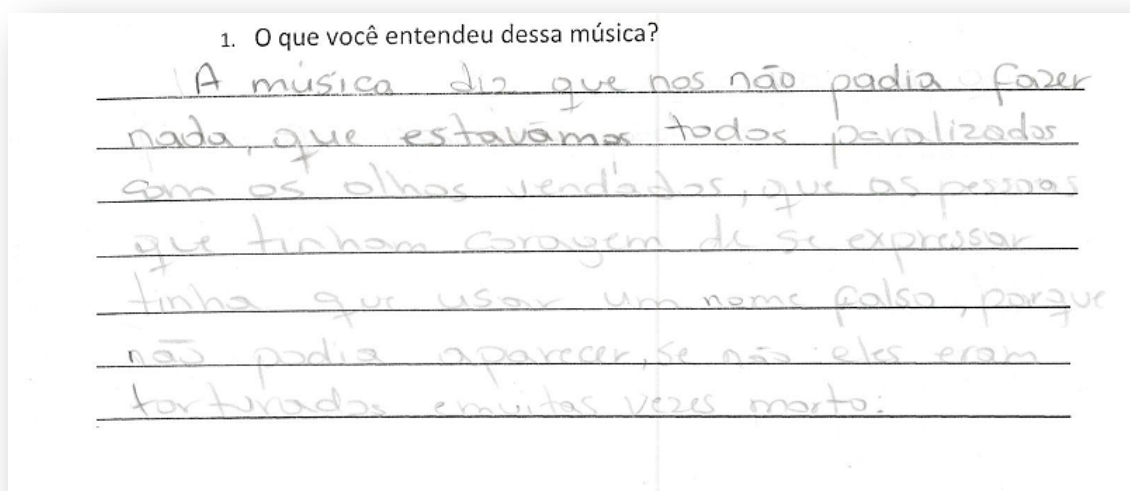 1. O que você entendeu dessa música?
A música diz que nos não padia fazer
nada, que estavamos todos paralizados
com os olhos vendados, que as pessoas
que tinham coragem de se expressar
tinha que usar um nome falso, porque
não podia aparecer, se não eles eram
torturados emuitas vezes morto.